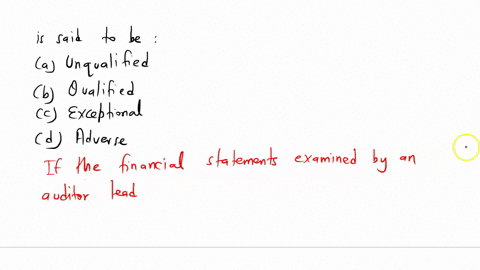 is said to be :
(a) Unqualified
(b) Qualified
(c) Exceptional
(d) Adverse
If the financial statements examined by an
auditor lead